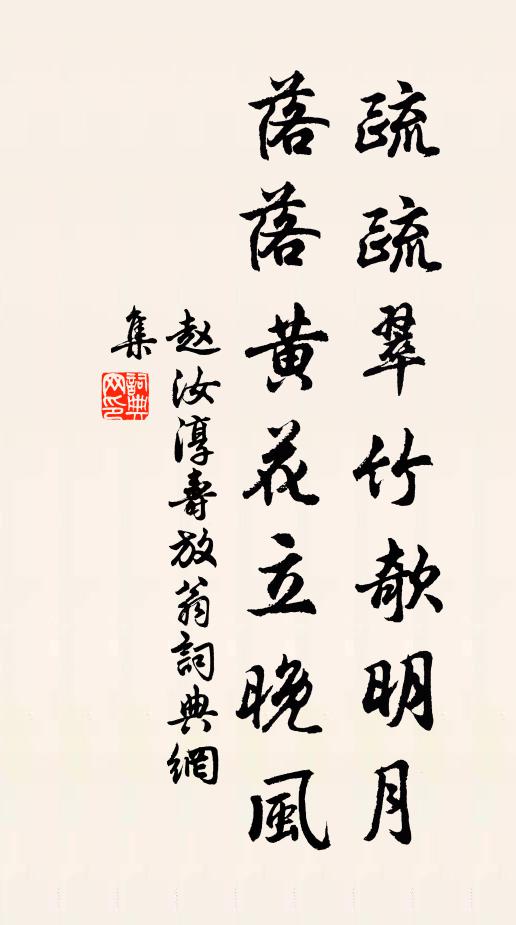 疏疏翠竹欹明月
落落黄花立晚風
赵汝淳壽放翁詞典網
集
詞典网印